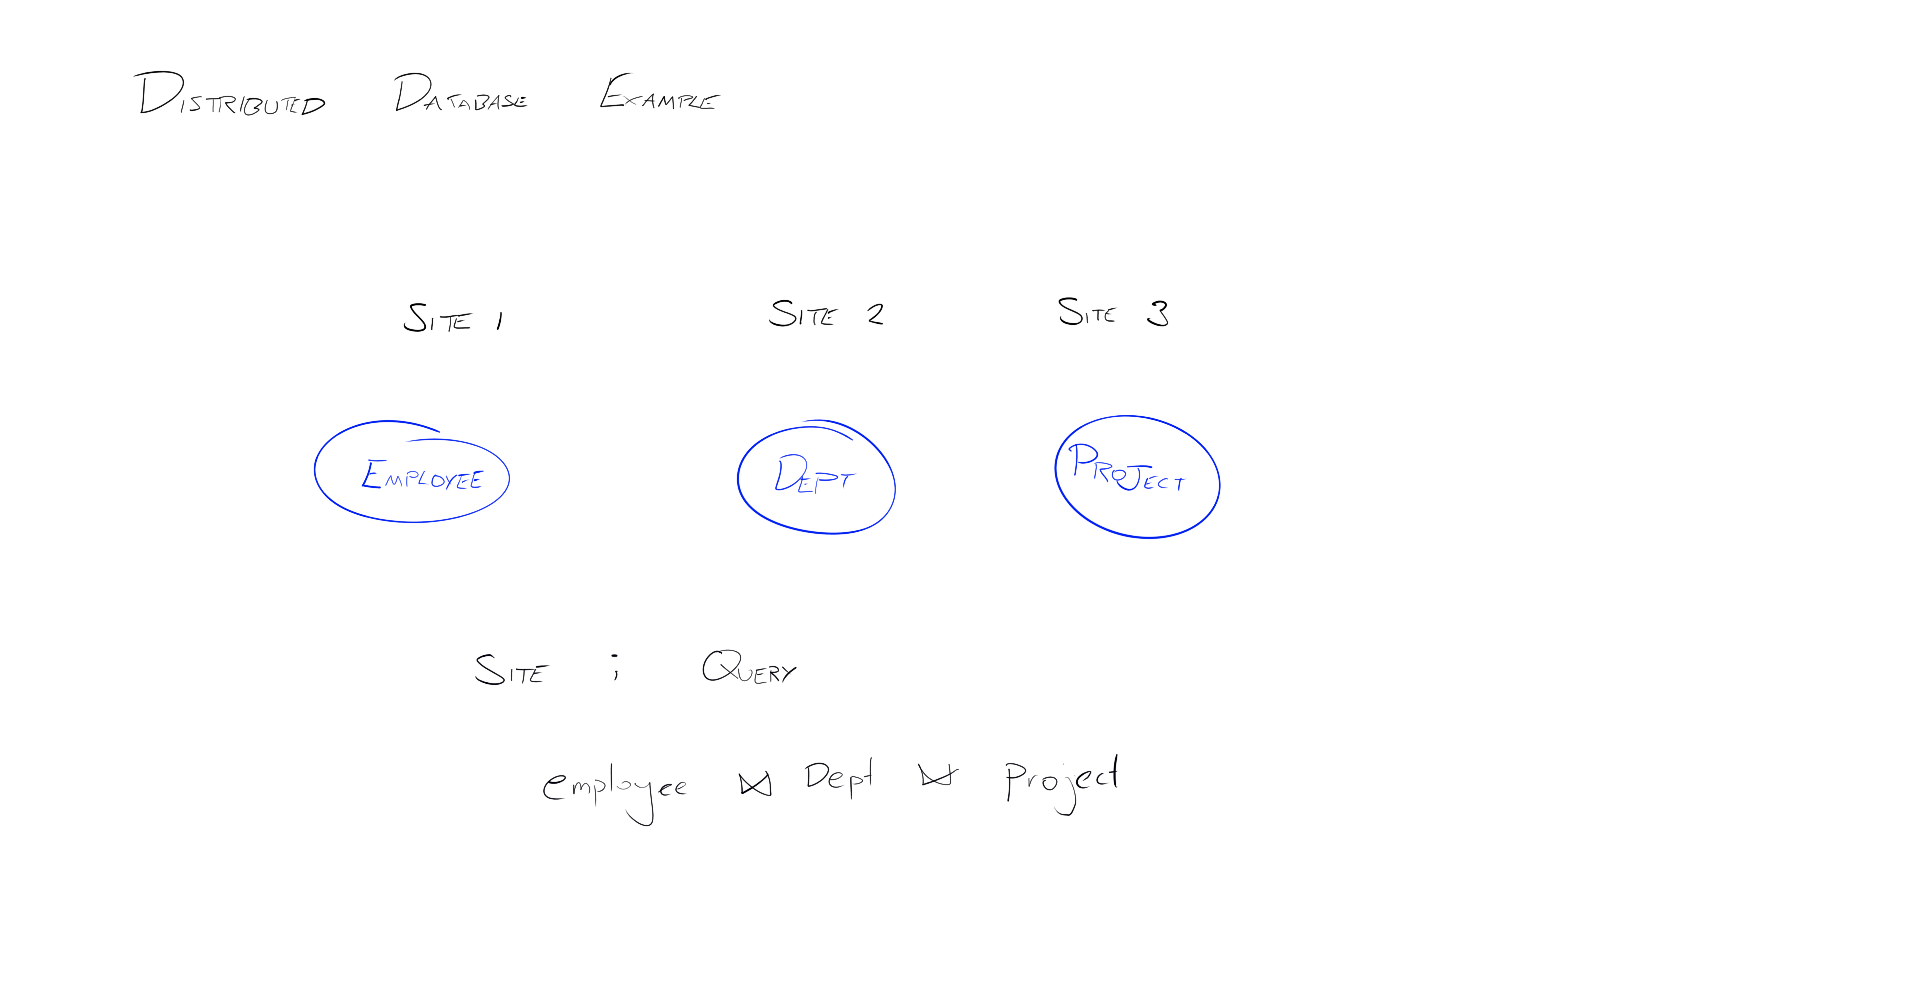 DISTRIBUTED DATABASE EXAMPLE
SITE 1 SITE 2 SITE 3
EMPLOYEE DEPT PROJECT
SITE ; QUERY
employee ⋈ Dept ⋈ Project